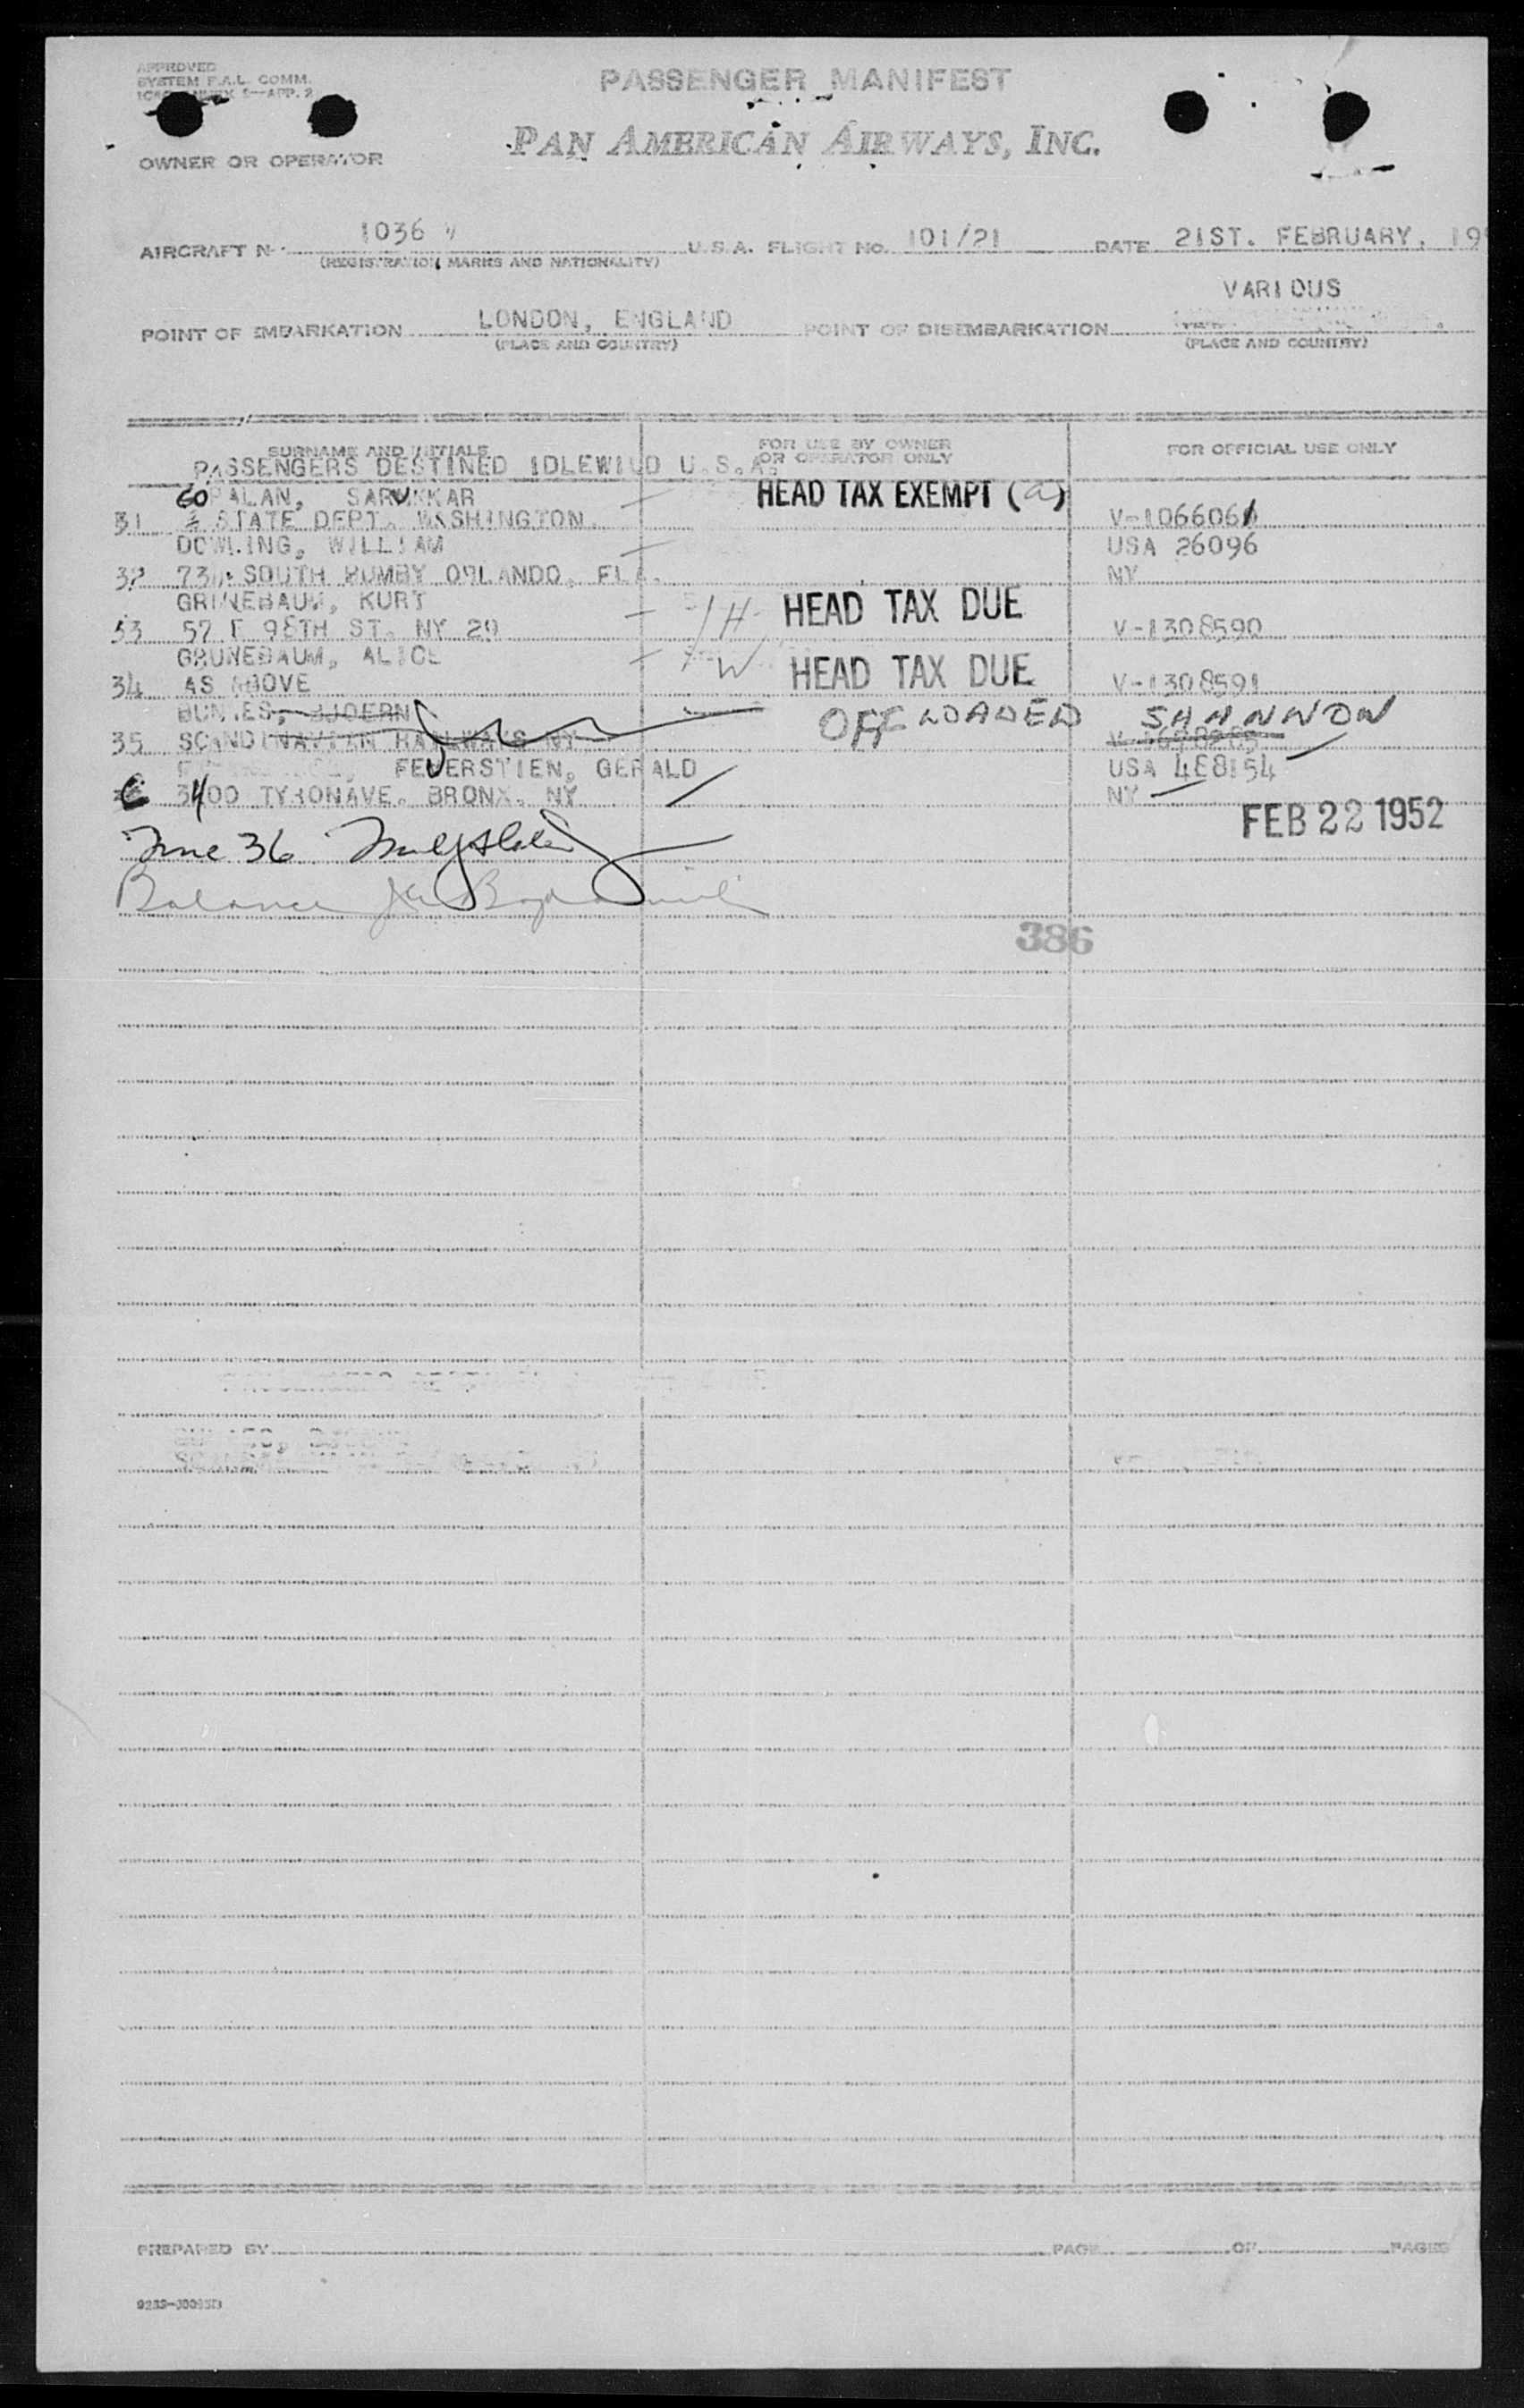 APPROVED
SYSTEM F.A.L. COMM.
PASSENGER MANIFEST
PAN AMERICAN AIRWAYS, INC.
OWNER OR OPERATOR
AIRCRAFT No. 1036 V U.S.A. FLIGHT No. 101/21 DATE 21ST. FEBRUARY, 19
(REGISTRATION MARKS AND NATIONALITY)
VARIOUS
POINT OF EMBARKATION LONDON, ENGLAND POINT OF DISEMBARKATION
(PLACE AND COUNTRY) (PLACE AND COUNTRY)
SURNAME AND INITIALS FOR USE BY OWNER OR OPERATOR ONLY FOR OFFICIAL USE ONLY
PASSENGERS DESTINED IDLEWILD U.S.A.
GOPALAN, HEAD TAX EXEMPT (a)
31 STATE DEPT. WASHINGTON. V-1066061
DOWLING, WILLIAM USA 26096
32 SOUTH BUMBY ORLANDO, FLA. NY
GRUNEBAUM, KURT H HEAD TAX DUE
33 57 E 98TH ST. NY 29 V-1308590
GRUNEBAUM, ALICE W HEAD TAX DUE
34 AS ABOVE V-1308591
BJOERN OFF LOADED SHANNON
35 SCANDINAVIAN RAILWAYS NY
FEUERSTIEN, GERALD USA 488154
3400 TYRONAVE. BRONX. NY NY
FEB 22 1952
36
Balance
386
PREPARED BY PAGE OF PAGES